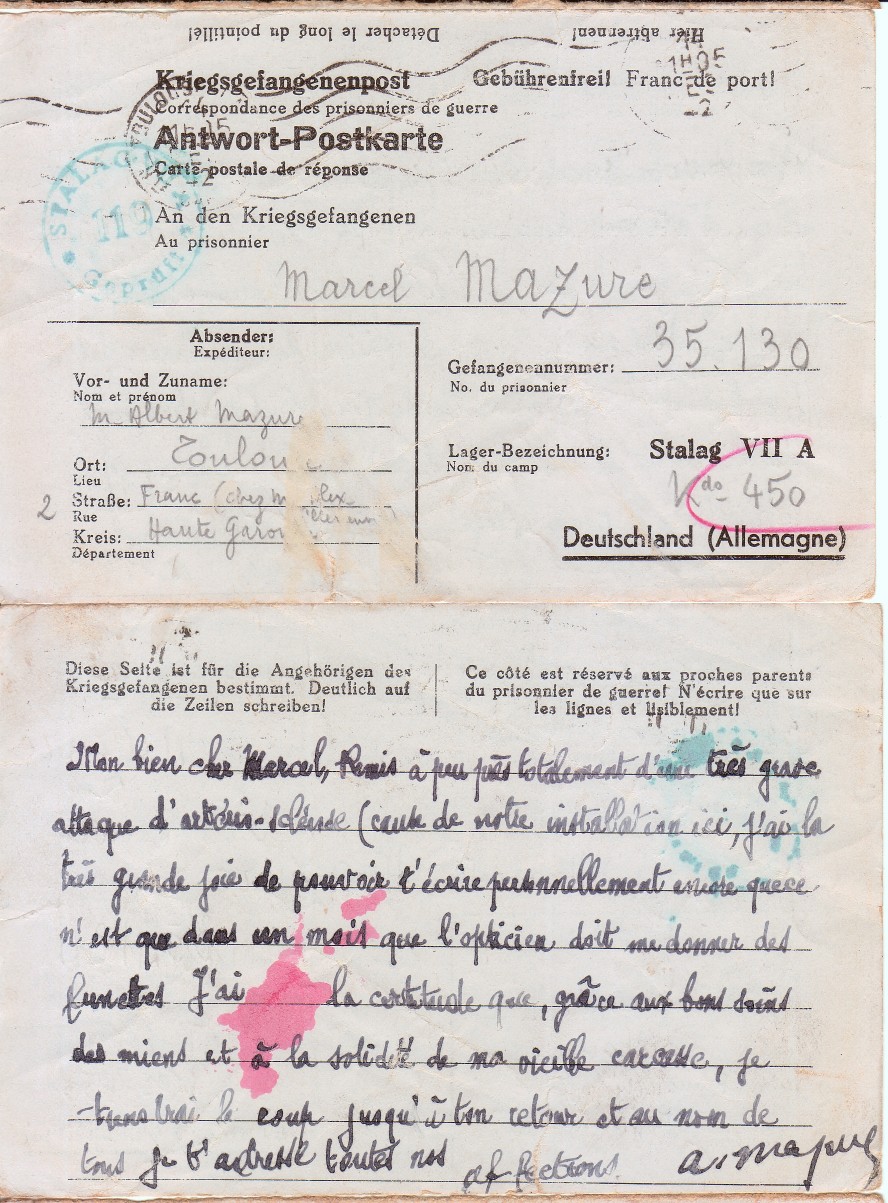 Détacher le long du pointillé! Hier abtrennen!
Kriegsgefangenenpost Gebührenfrei! Franc de port!
Correspondance des prisonniers de guerre
Antwort-Postkarte
Carte postale de réponse
STALAG
119
Geprüft
An den Kriegsgefangenen
Au prisonnier
Marcel Mazure
Absender:
Expéditeur:
Vor- und Zuname:
Nom et prénom
M. Albert Mazure
Ort: Toulou
Lieu
2 Straße: Franc (chez M
Rue
Kreis: Haute Garon
Département
Gefangenennummer: 35.130
No. du prisonnier
Lager-Bezeichnung: Stalag VII A
Nom du camp
Kdo 450
Deutschland (Allemagne)
Diese Seite ist für die Angehörigen des
Kriegsgefangenen bestimmt. Deutlich auf
die Zeilen schreiben!
Ce côté est réservé aux proches parents
du prisonnier de guerre! N'écrire que sur
les lignes et lisiblement!
Mon bien cher Marcel, Remis à peu près totalement d'une très grave
attaque d'artério-sclérose (cause de notre installation ici, j'ai la
très grande joie de pouvoir t'écrire personnellement encore que ce
n'est que dans un mois que l'opticien doit me donner des
lunettes J'ai la certitude que, grâce aux bons soins
des miens et à la solidité de ma vieille carcasse, je
tiendrai le coup jusqu'à ton retour et au nom de
tous je t'adresse toutes nos affections. a. Mazure